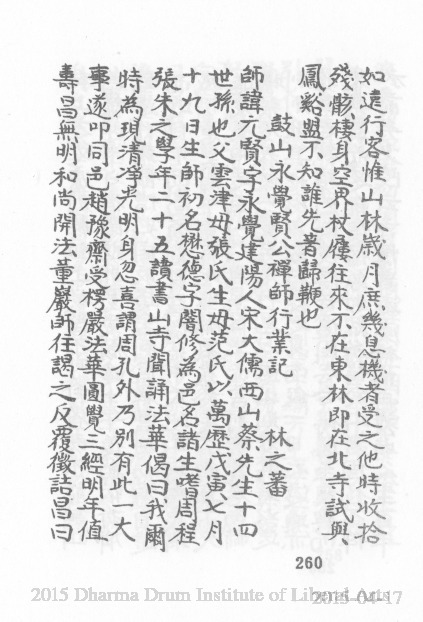 如遠行客惟山林歲月庶幾息機者受之他時收拾
殘骸棲身空界杖屨往來不在東林即在北寺試與
鳳谿盟不知誰先著歸鞭也
鼓山永覺賢公禪師行業記 林之蕃
師諱元賢字永覺建陽人宋大儒西山蔡先生十四
世孫也父雲津母張氏生母范氏以萬歷戊寅七月
十九日生師初名懋德字闇修為邑名諸生嗜周程
張朱之學年二十五讀書山寺聞誦法華偈曰我爾
時為現清淨光明身忽喜謂周孔外乃別有此一大
事遂叩同邑趙豫齋受楞嚴法華圓覺三經明年值
壽昌無明和尚開法董巖師往謁之反覆徵詰昌曰
260
2015 Dharma Drum Institute of Liberal Arts
2015-04-17